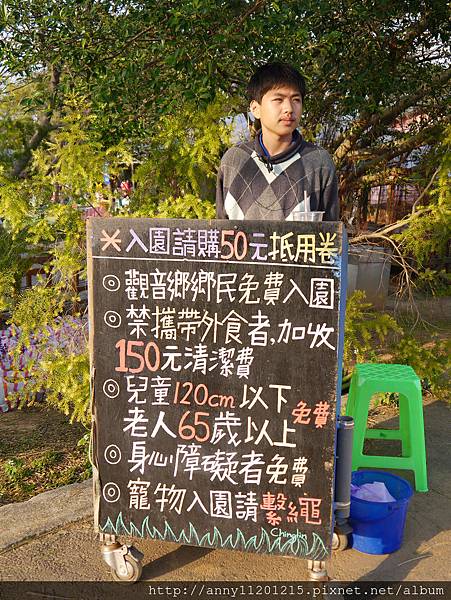 ※入園請購50元抵用卷
◎觀音鄉鄉民免費入園
◎禁攜帶外食者,加收
150元清潔費
◎兒童120cm以下
老人65歲以上
免費
◎身心障礙者免費
◎寵物入園請繫繩
Chinglin
http://anny11201215.pixnet.net/album